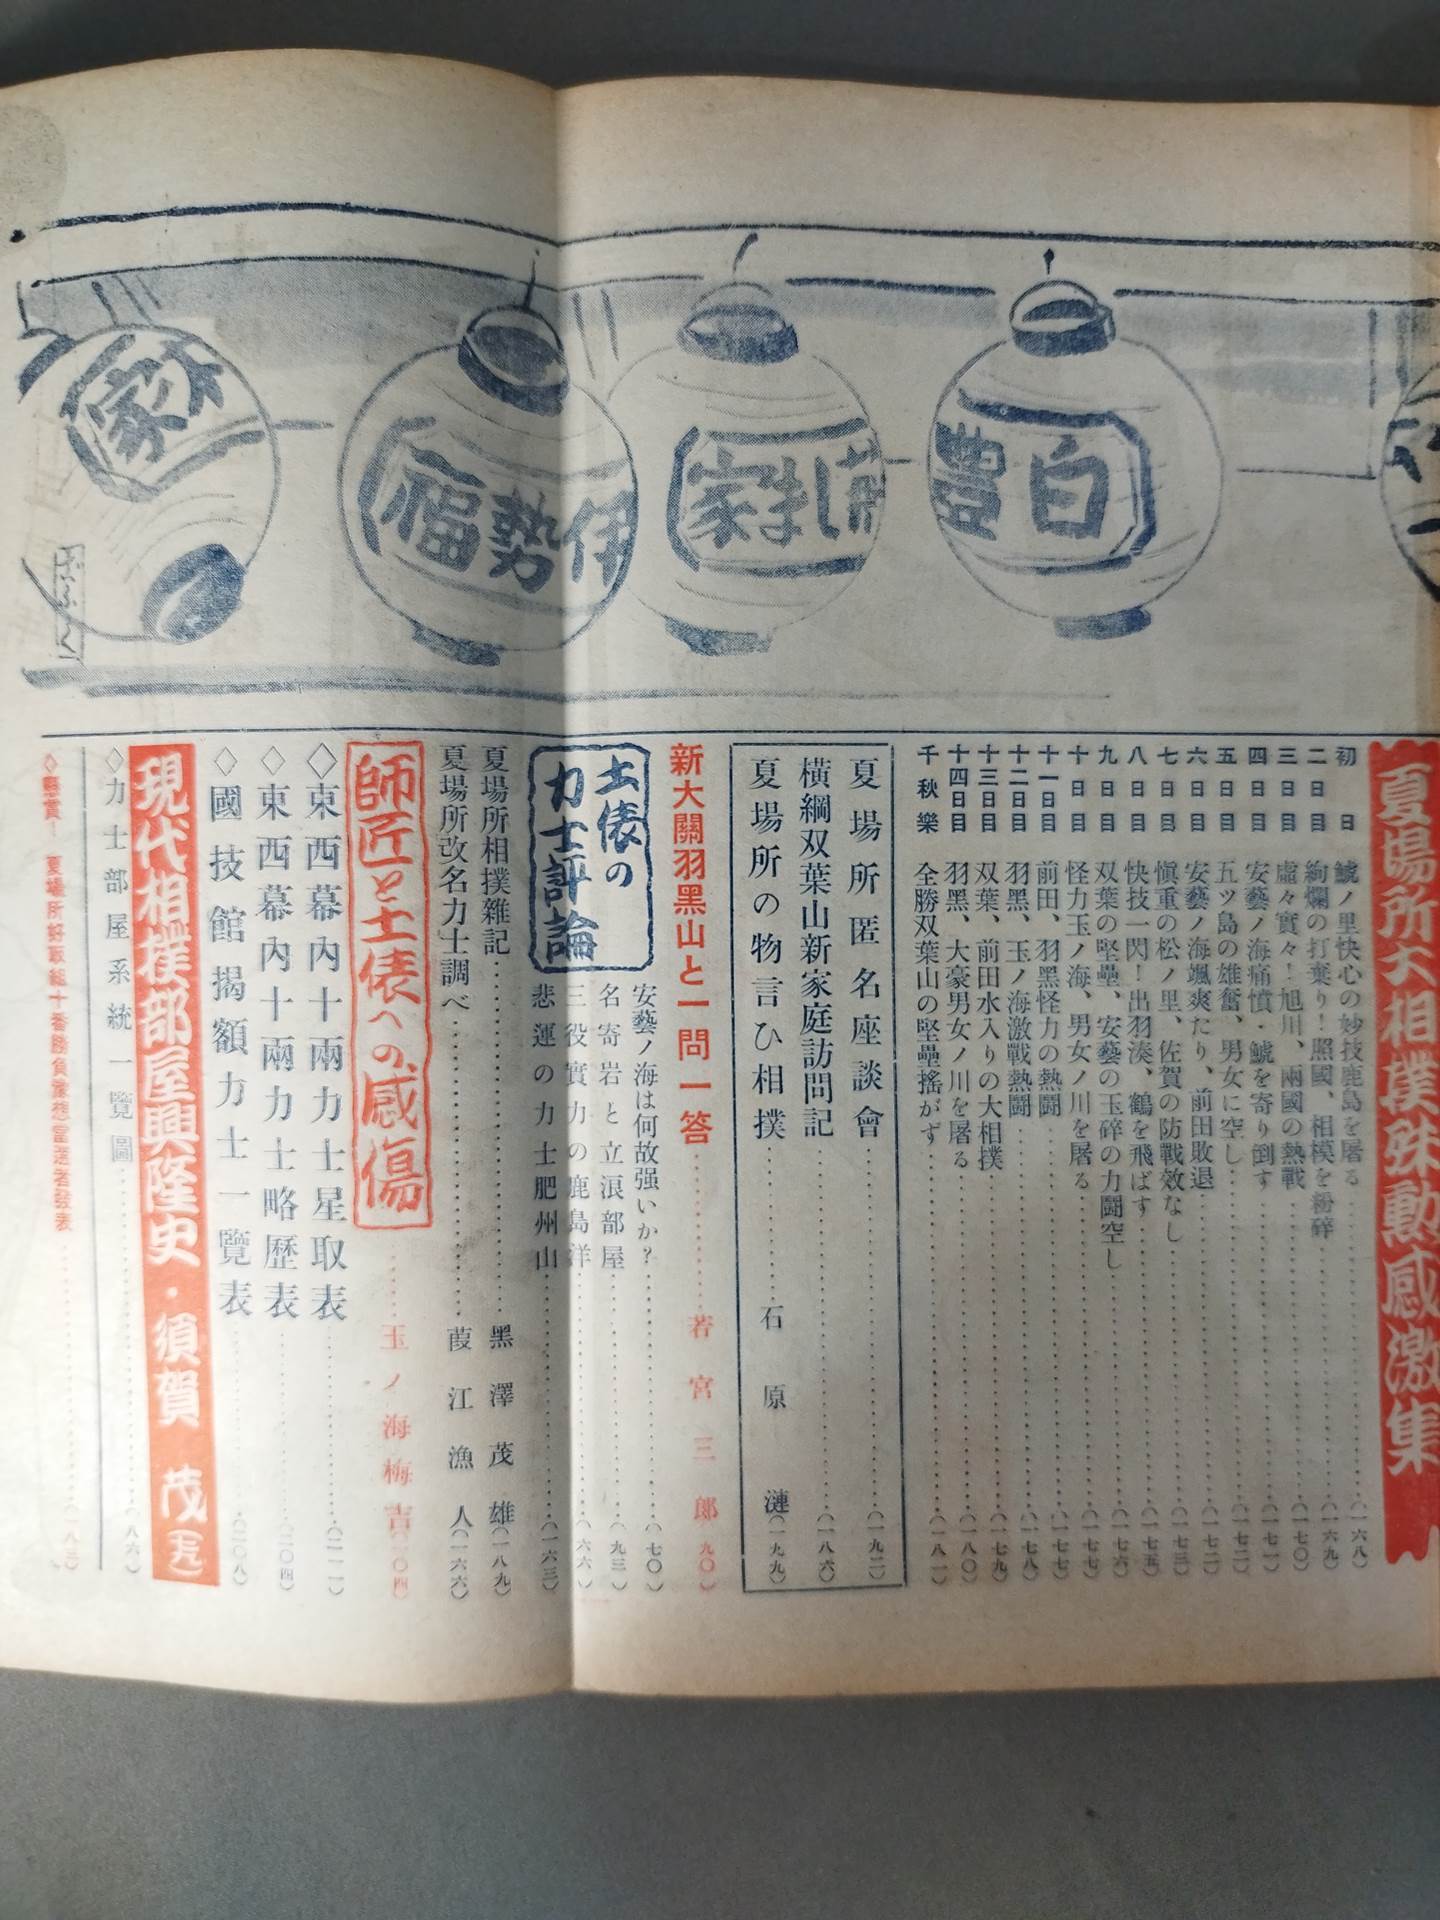 白豊
家
伊勢福
家
夏場所大相撲殊勲感激集
初日 鯱ノ里快心の妙技鹿島を屠る……(一六八)
二日目 絢爛の打棄り!照國、相模を粉碎……(一六九)
三日目 虚々實々!旭川、兩國の熱戰……(一七〇)
四日目 安藝ノ海痛憤・鯱を寄り倒す……(一七一)
五日目 五ツ島の雄奮、男女に空し……(一七二)
六日目 安藝ノ海颯爽たり、前田敗退……(一七二)
七日目 愼重の松ノ里、佐賀の防戰效なし……(一七三)
八日目 快技一閃!出羽湊、鶴を飛ばす……(一七五)
九日目 双葉の堅壘、安藝の玉碎の力鬪空し……(一七六)
十日目 怪力玉ノ海、男女ノ川を屠る……(一七七)
十一日目 前田、羽黑怪力の熱鬪……(一七七)
十二日目 羽黑、玉ノ海激戰熱鬪……(一七八)
十三日目 双葉、前田水入りの大相撲……(一七九)
十四日目 羽黑、大豪男女ノ川を屠る……(一八〇)
千秋樂 全勝双葉山の堅壘搖がず……(一八一)
夏場所匿名座談會……(一九二)
橫綱双葉山新家庭訪問記……(一八六)
夏場所の物言ひ相撲……石原漣(一九九)
新大關羽黑山と一問一答……若宮三郎(九〇)
土俵の力士評論
安藝ノ海は何故强いか?……(七〇)
名寄岩と立浪部屋……(九三)
三役實力の鹿島洋……(六六)
悲運の力士肥州山……(一六三)
夏場所相撲雜記……黑澤茂雄(一八九)
夏場所改名力士調べ……葭江漁人(一六六)
師匠と土俵への感傷……玉ノ海梅吉(一〇四)
◇東西幕內十兩力士星取表……(二一一)
◇東西幕內十兩力士略歷表……(二〇四)
◇國技館揭額力士一覽表……(二〇八)
現代相撲部屋興隆史・須賀茂
◇力士部屋系統一覽圖……(八六)
◇懸賞!夏場所好取組十番勝負豫想當選者發表……(八三)